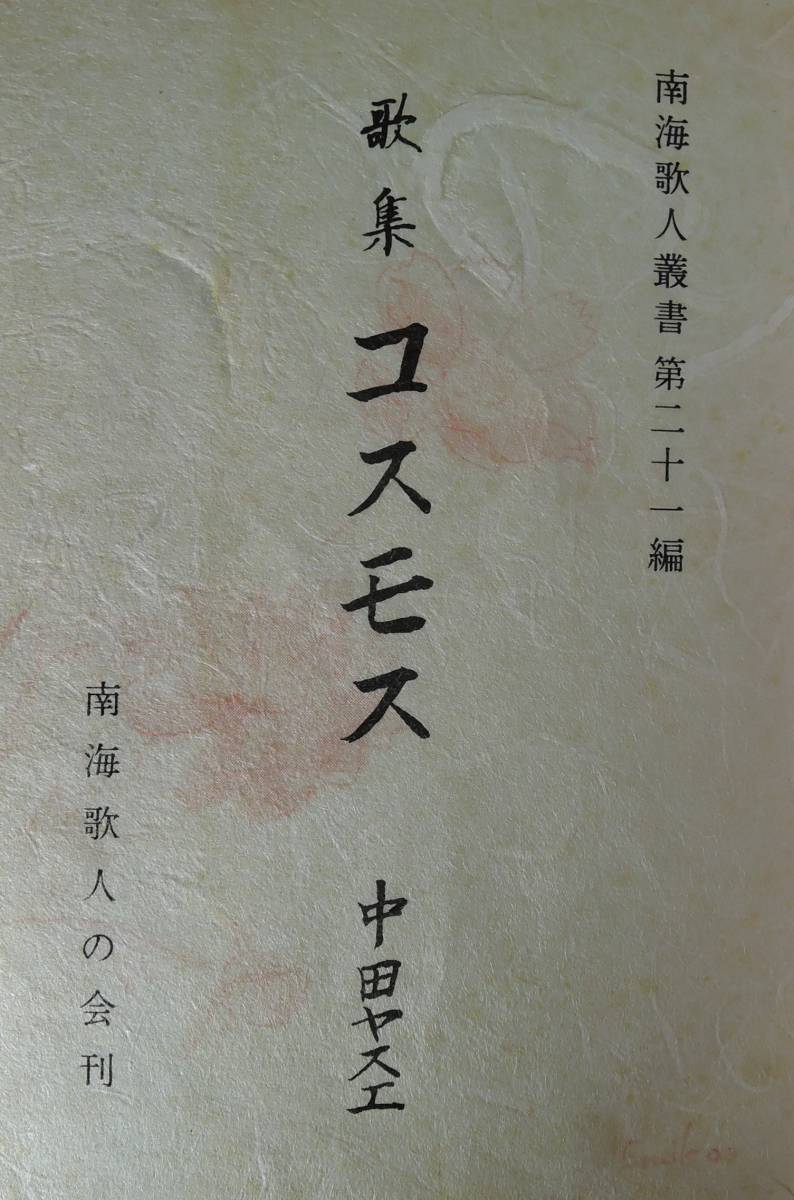 南海歌人叢書 第二十一編
歌集 コスモス 中田ヤスエ
南海歌人の会刊